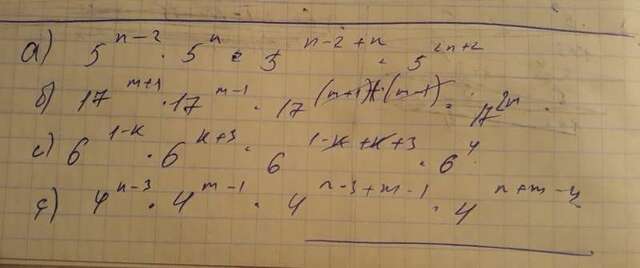 а) 5^{n-2} · 5^n = 5^{n-2+n} = 5^{2n+2}
б) 17^{m+1} · 17^{m-1} = 17^{(m+1)+(m-1)} = 17^{2m}
с) 6^{1-k} · 6^{k+3} = 6^{1-k+k+3} = 6^4
ç) 4^{n-3} · 4^{m-1} = 4^{n-3+m-1} = 4^{n+m-4}